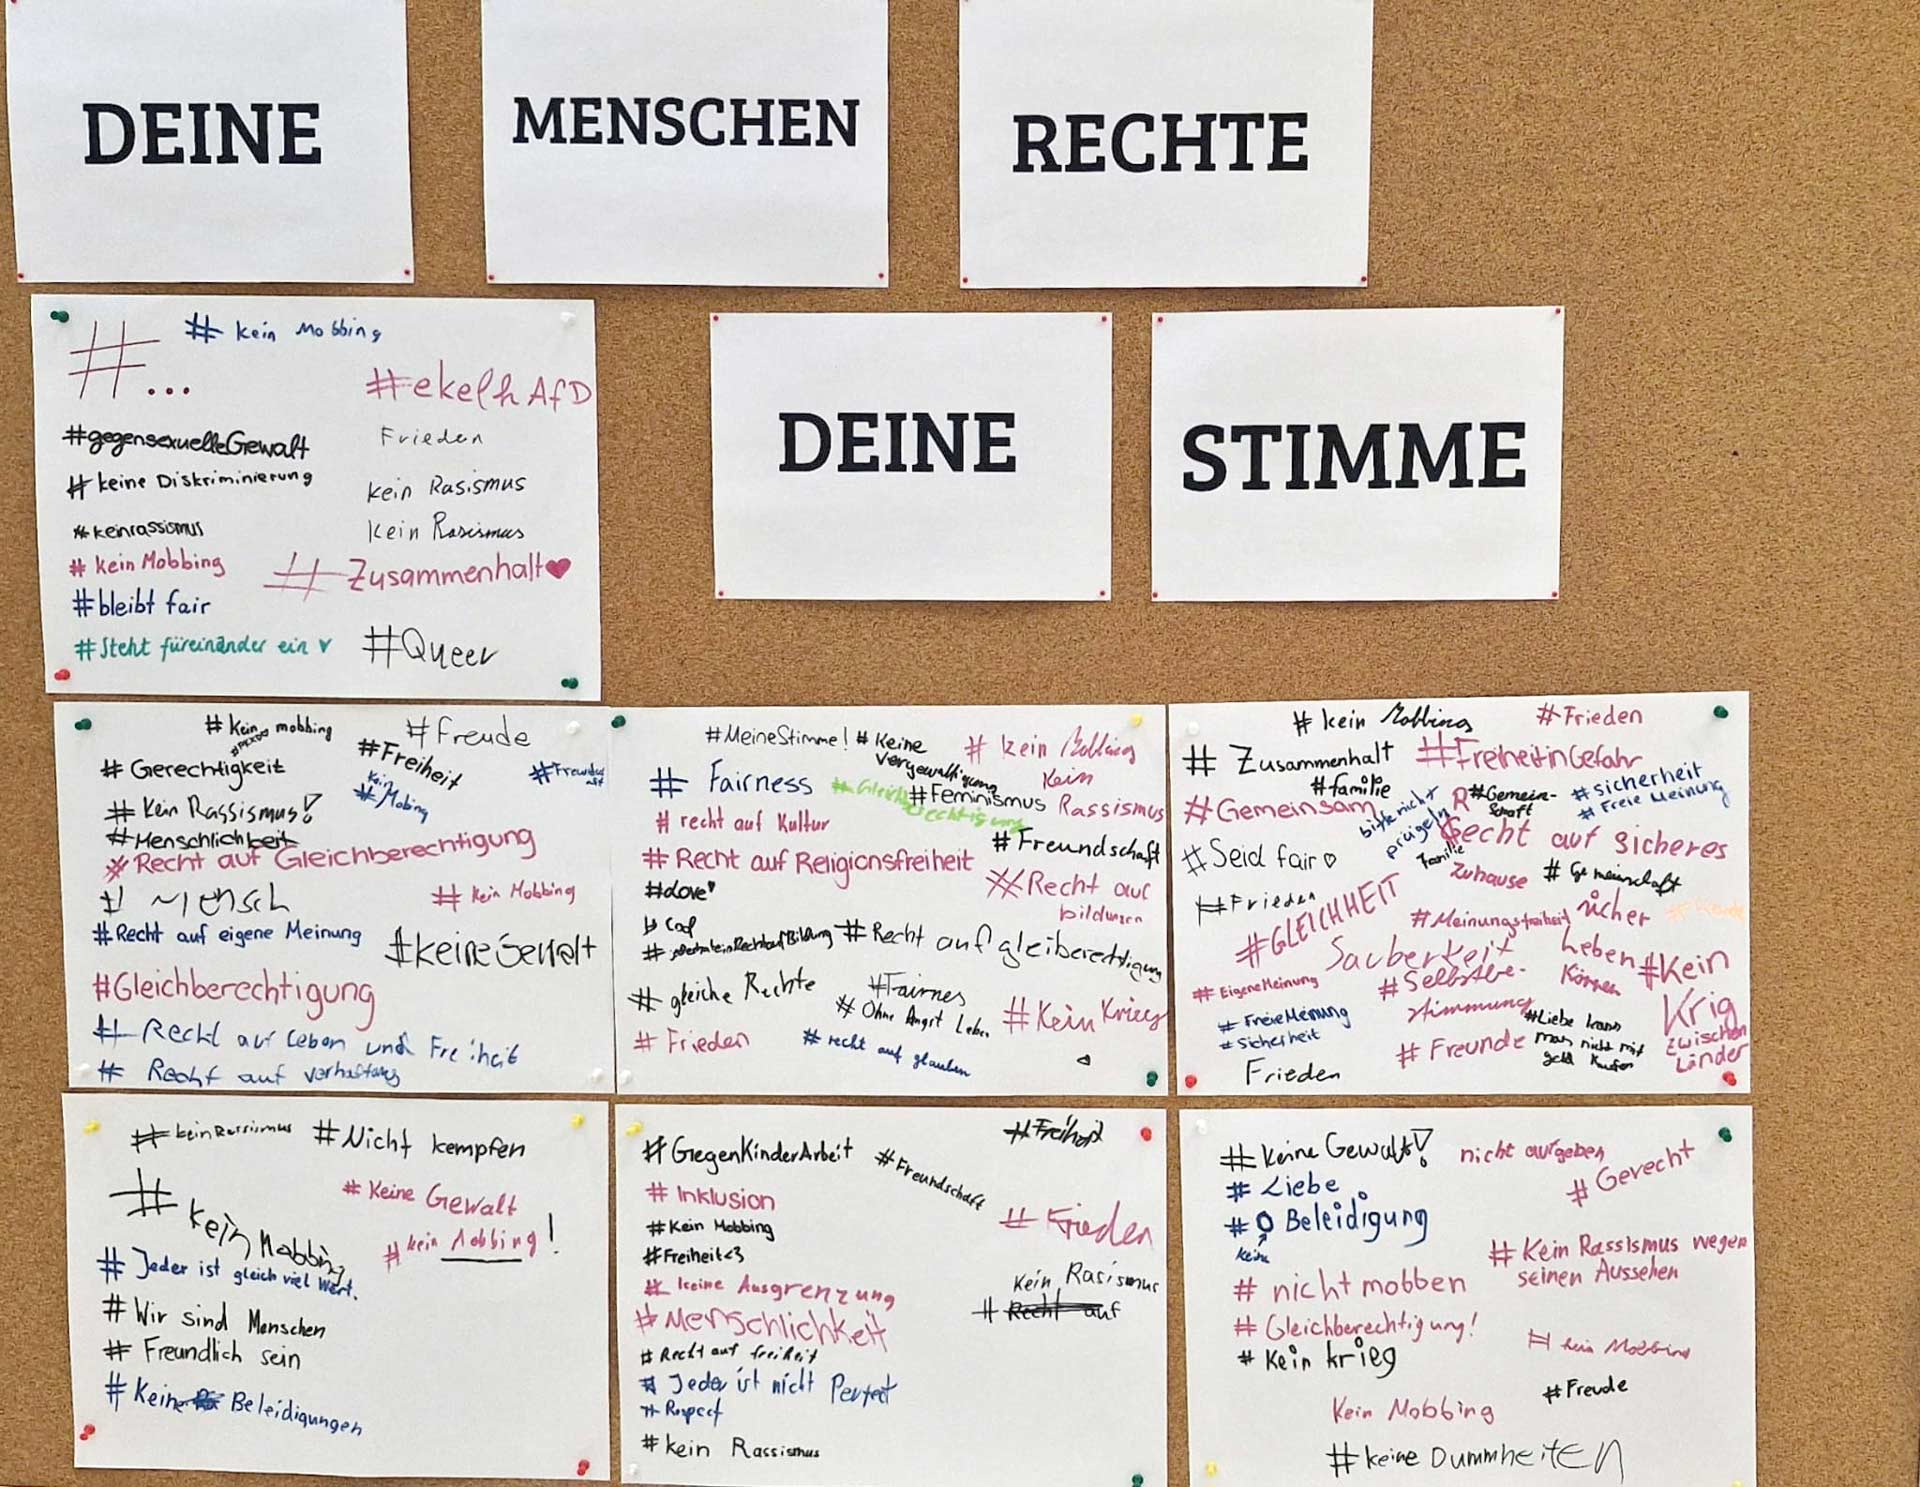 DEINE
MENSCHEN
RECHTE
DEINE
STIMME
#...
# kein Mobbing
#ekelhAfD
#gegensexuelleGewalt
Frieden
# keine Diskriminierung
kein Rasismus
#keinrassismus
kein Rasismus
# kein Mobbing
#Zusammenhalt
#bleibt fair
#Steht füreinander ein
#Queer
# Kein mobbing
#Freude
# Gerechtigkeit
#Freiheit
# Kein Rassismus!
Kein
# Mobing
#Menschlichkeit
#Recht auf Gleichberechtigung
Mensch
# kein Mobbing
#Recht auf eigene Meinung
#keine Gewalt
#Gleichberechtigung
# Recht auf Leben und Freiheit
# Recht auf verhaftung
#MeineStimme!
# Keine
Vergewaltigung
# kein Mobbing
# Fairness
#Gleich
berechtigung
#Feminismus
Kein
Rassismus
# recht auf Kultur
#Freundschaft
# Recht auf Religionsfreiheit
#Love
#Recht auf
bildungen
# Cool
# Recht auf gleiberechtigung
# gleiche Rechte
#Fairnes
# Ohne Angst Leben
#Kein Krieg
# Frieden
# recht auf glauben
# kein Mobbing
#Frieden
# Zusammenhalt
#FreiheitinGefahr
#familie
#Gemein-
schaft
#sicherheit
# Freie Meinung
#Gemeinsam
bitte nicht
prügeln
Recht auf sicheres
Zuhause
#Seid fair
Familie
# Gemeinschaft
#Frieden
#GLEICHHEIT
#Meinungsfreiheit
sicher
leben
können
Sauberkeit
#Kein
Krig
zwischen
Länder
# EigeneMeinung
#Selbstbe-
stimmung
# FreieMeinung
# Sicherheit
#Liebe kann
man nicht mit
geld kaufen
# Freunde
Frieden
# keinRassismus
#Nicht kempfen
# kein Mobbing
# Keine Gewalt
# kein Mobbing!
# Jeder ist gleich viel Wert.
# Wir sind Menschen
# Freundlich sein
# Keine Beleidigungen
#GegenKinderArbeit
#Freundschaft
#Freiheit
# Inklusion
# Frieden
#Kein Mobbing
#Freiheit<3
# keine Ausgrenzung
Kein Rasismus
# Recht auf
#Menschlichkeit
# Recht auf freiheit
# Jeder ist nicht Perfect
# Respect
# kein Rassismus
# keine Gewalt!
nicht aufgeben
# Gerecht
# Liebe
# 0 Beleidigung
keine
# Kein Rassismus wegen
seinen Aussehen
# nicht mobben
# Gleichberechtigung!
# kein Mobbing
# Kein krieg
#Freude
Kein Mobbing
#keine Dummheiten